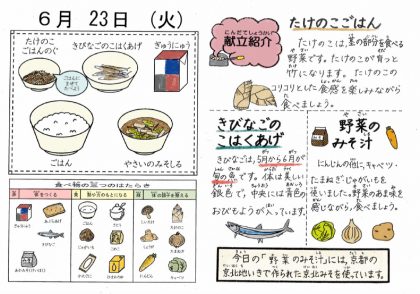 6月 23日 (火)
たけのこ
ごはんのぐ
きびなごのこはくあげ
ぎゅうにゅう
ごはん
やさいのみそしる
食べ物の三つのはたらき
こんだてしょうかい
献立紹介
たけのこごはん
たけのこは、茎の部分を食べる
野菜です。たけのこが育って
竹になります。たけのこの
コリコリとした食感を楽しみながら
食べましょう。
きびなごの
こはくあげ
きびなごは、5月から6月が
旬の魚です。体は美しい
銀色で、中央には青色の
おびもようが入っています。
野菜の
みそ汁
にんじんの他にキャベツ・
たまねぎ・じゃがいもを
使いました。野菜のあま味を
感じながら食べましょう。
今日の「野菜のみそ汁」には、京都の
京北地いきで作られた京北みそを使っています。